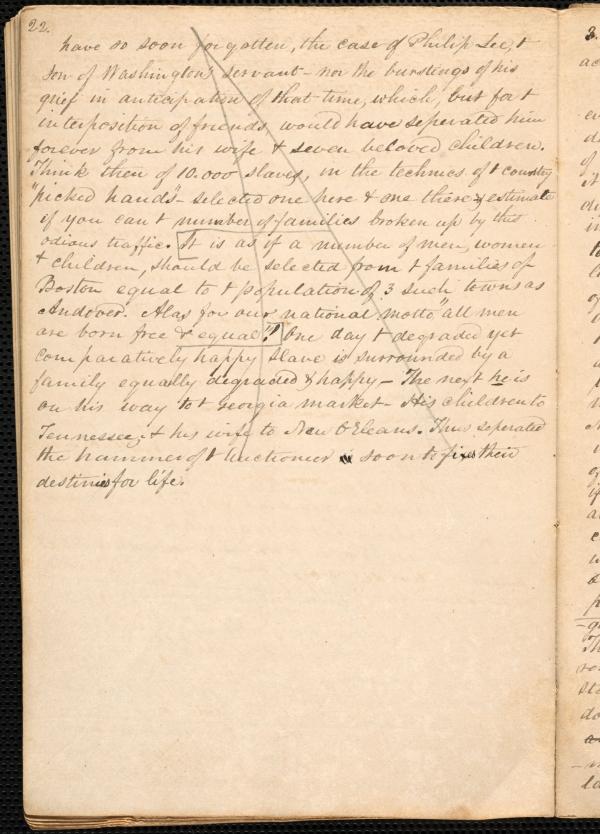 22.
have so soon forgotten, the case of Philip Lee, t
son of Washington's servant - nor the burstings of his
grief in anticipation of that time, which, but for t
interposition of friends, would have seperated him
forever from his wife & seven beloved children.
Think then of 10.000 slaves, in the technics of t country
"picked hands" - selected one here & one there & estimate
if you can t number of families broken up by this
odious traffic. [It is as if a number of men, women
& children, should be selected from t families of
Boston equal to t population of 3 such towns as
Andover. Alas for our national motto "all men
are born free & equal"!] One day t degraded yet
comparatively happy slave is surrounded by a
family equally degraded & happy - The next he is
on his way to t Georgia market - His children to
Tennessee, & his wife to New Orleans. Thus seperated
the hammer of t Auctioneer is soon to fix their
destinies for life.